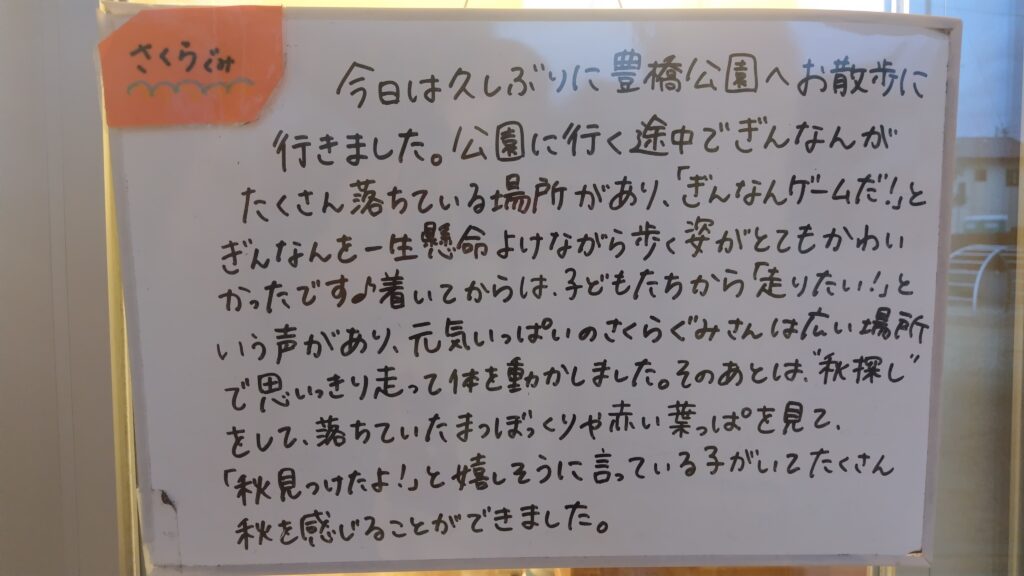 さくらぐみ
今日は久しぶりに豊橋公園へお散歩に
行きました。公園に行く途中でぎんなんが
たくさん落ちている場所があり、「ぎんなんゲームだ!」と
ぎんなんを一生懸命よけながら歩く姿がとてもかわい
かったです♪着いてからは、子どもたちから「走りたい!」と
いう声があり、元気いっぱいのさくらぐみさんは広い場所
で思いっきり走って体を動かしました。そのあとは、"秋探し"
をして、落ちていたまつぼっくりや赤い葉っぱを見て、
「秋見つけたよ!」と嬉しそうに言っている子がいてたくさん
秋を感じることができました。